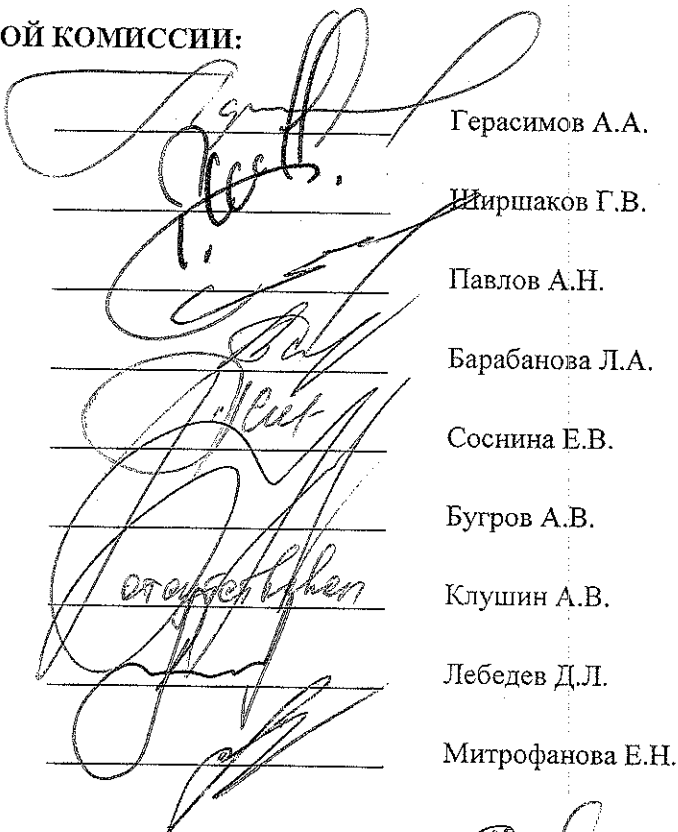 ОЙ КОМИССИИ:
Герасимов А.А.
Ширшаков Г.В.
Павлов А.Н.
Барабанова Л.А.
Соснина Е.В.
Бугров А.В.
отсутствовал Клушин А.В.
Лебедев Д.Л.
Митрофанова Е.Н.